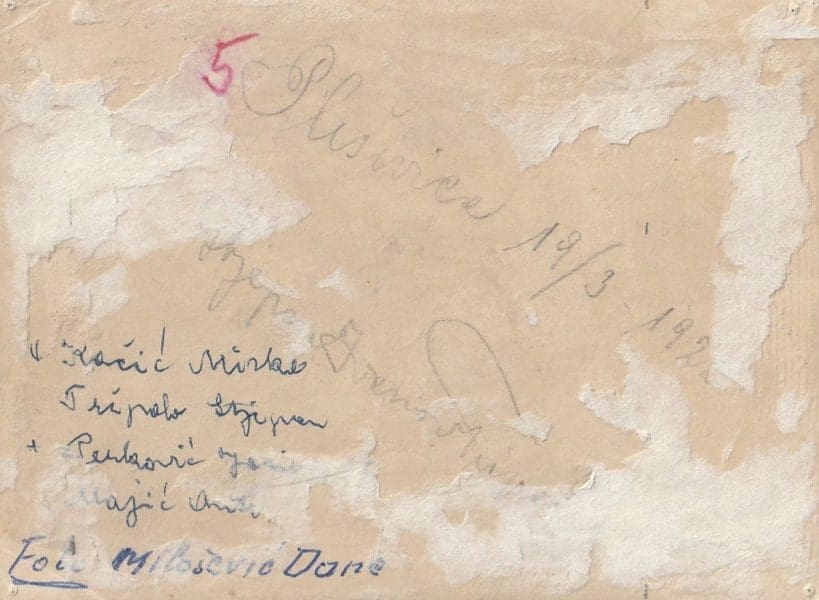 5
Plišivica 19/3 192
Stjepan
Kačić Mirko
Tripalo Stjepan
+ Perković
Majić Ante
Foto Milošević Dane